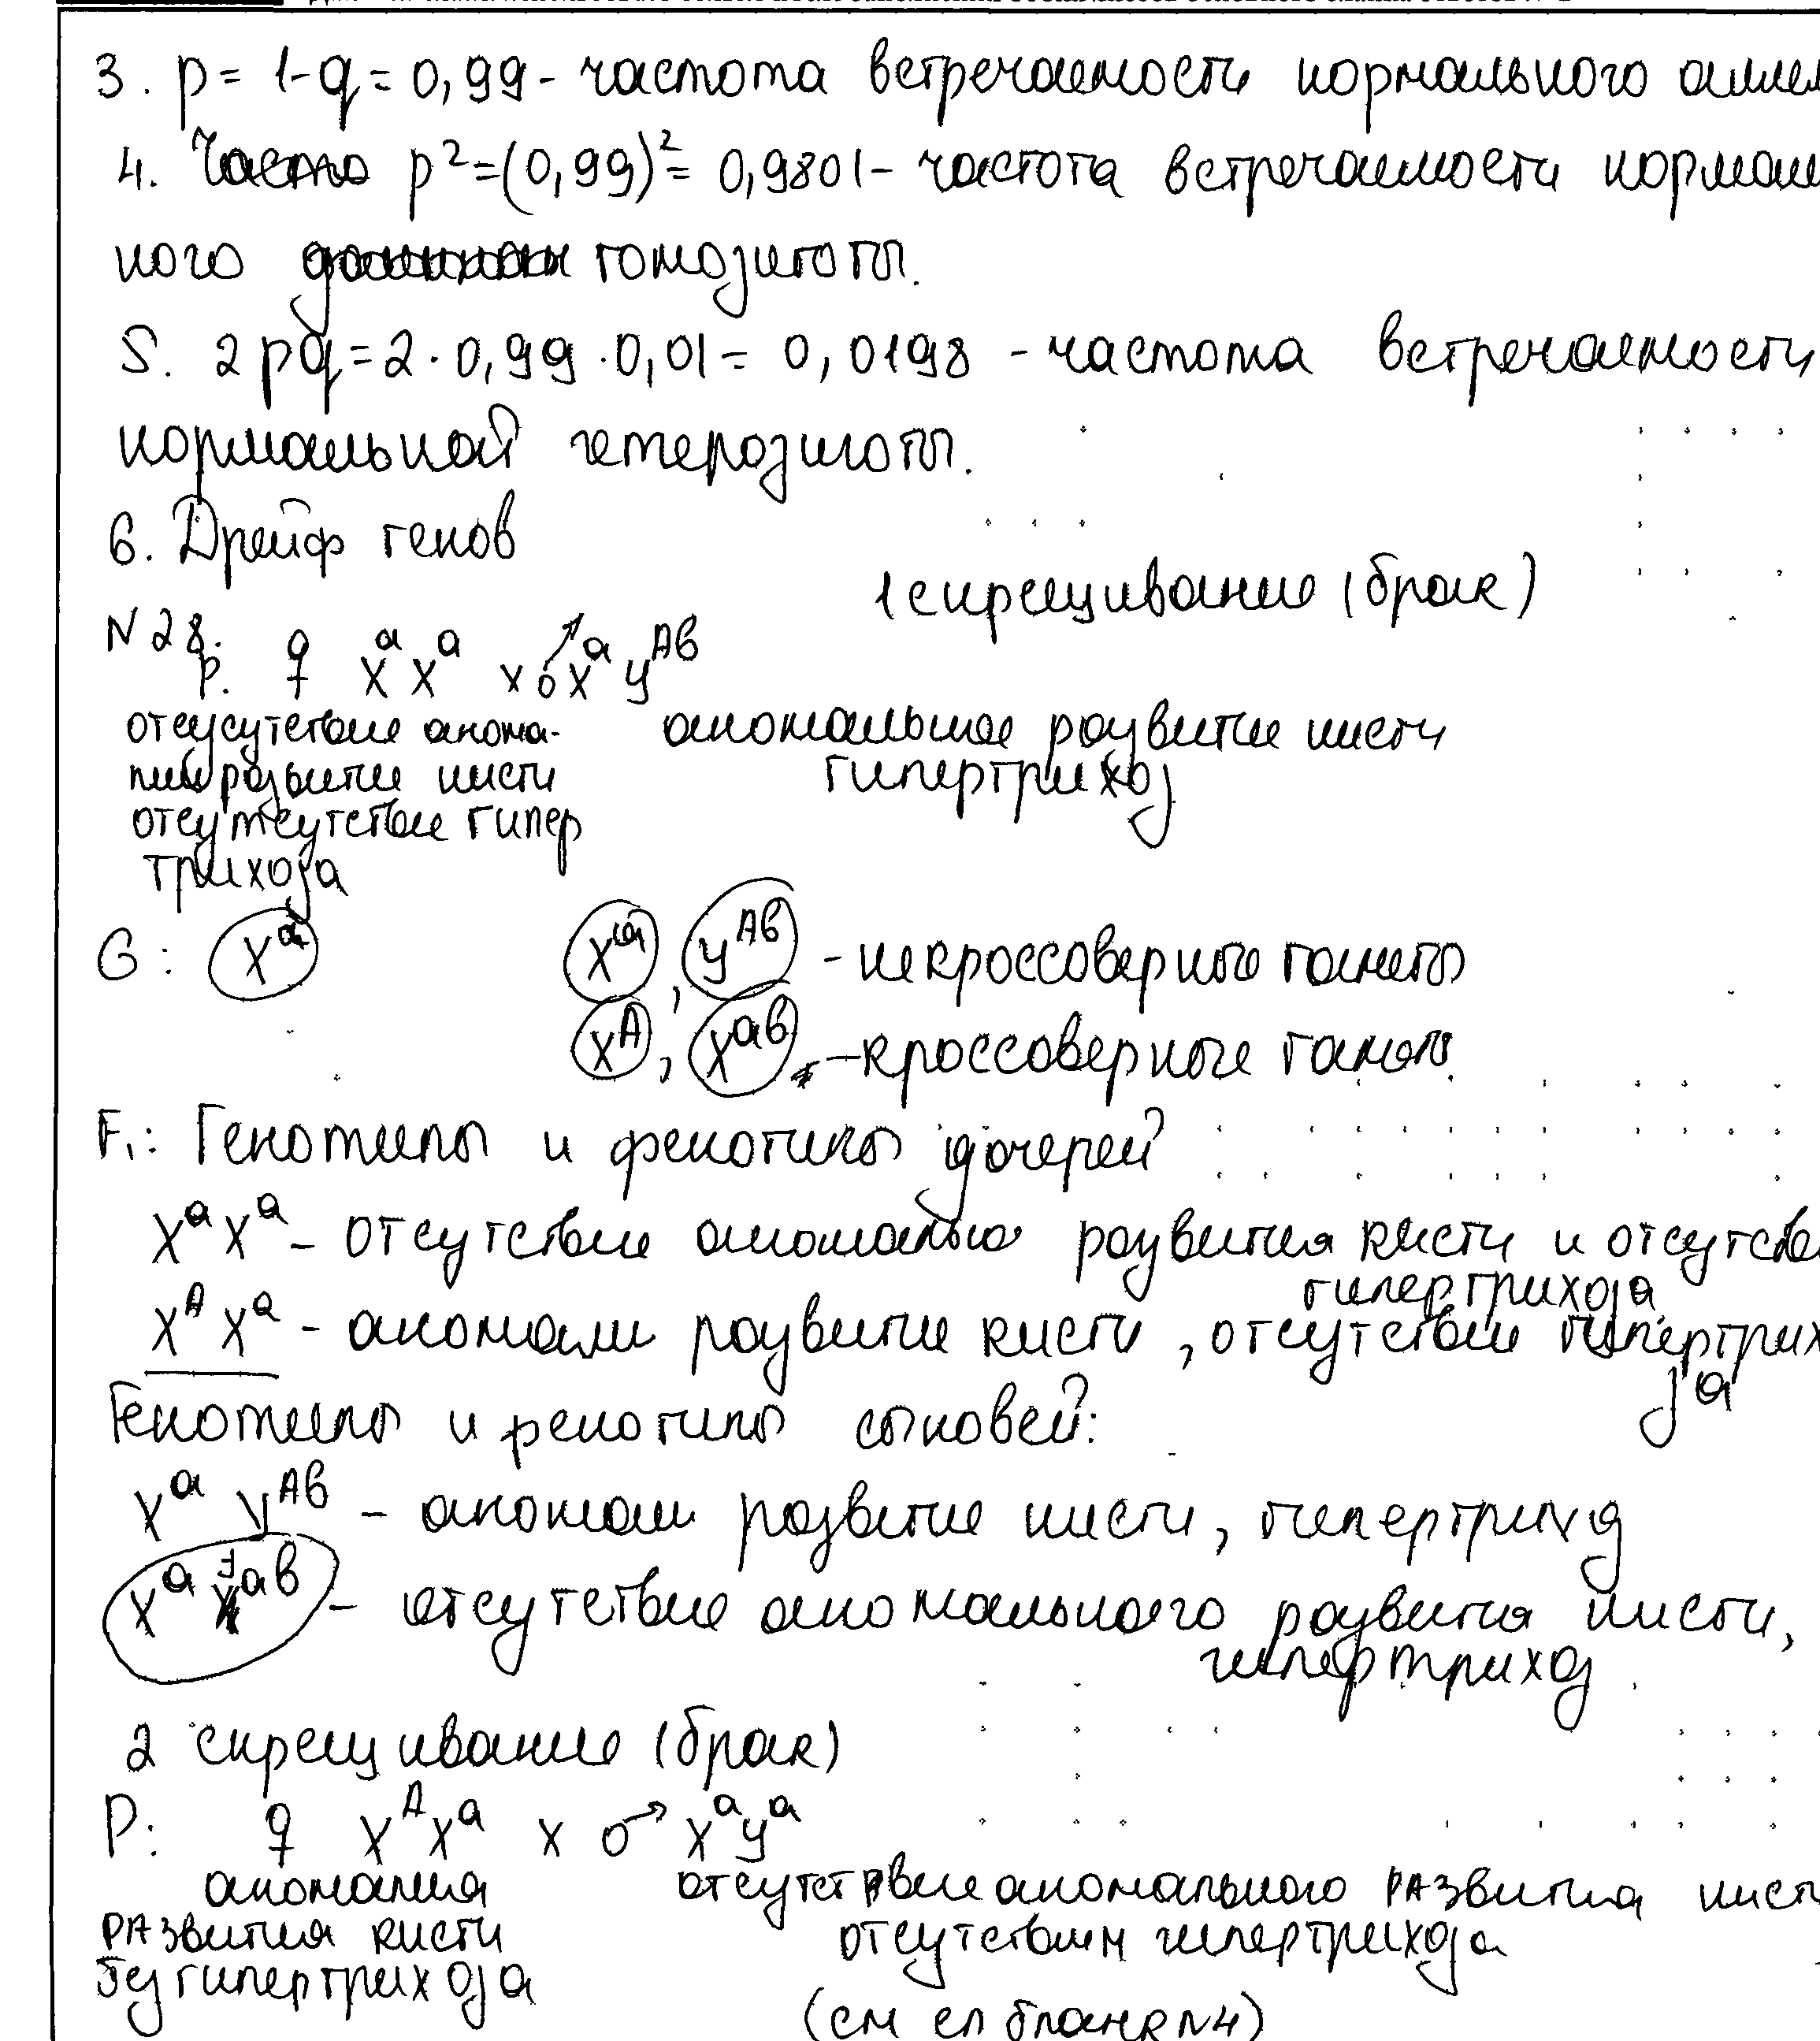 3. p = 1-q = 0,99 - частота встречаемости нормального аллел
4. Часто p² = (0,99)² = 0,9801 - частота встречаемости нормаль
ного гомозиготы.
5. 2pq = 2 · 0,99 · 0,01 = 0,0198 - частота встречаемости
нормальной гетерозиготы.
6. Дрейф генов
1 скрещивание (брак)
N 28.
P. ♀ XᵃXᵃ x ♂ XᵃYᴬᵇ
отсусутствие анома- аномальное развитие кисти
лии развитие кисти гипертрихоз
отсутсутствие гипер
трихоза
G: Xᵃ Xᵃ, Yᴬᵇ - некроссоверные гаметы
Xᴬ, Xᵃᵇ - кроссоверные гаметы.
F₁: Генотипы и фенотипы дочерей
XᵃXᵃ - отсутствие аномалью развития кисти и отсутстви
гипертрихоза
XᴬXᵃ - аномали развитие кисти, отсутствие гипертрих
за
Генотипы и фенотипы сыновей:
XᵃYᴬᵇ - аномали развитие кисти, гипертрихз
Xᵃ Yᵃᵇ - отсутствие аномального развития кисти,
гипертрихоз
2 скрещивание (брак)
P: ♀ XᴬXᵃ x ♂ XᵃYᵃ
аномалия отсутствие аномального развития кист
развития кисти отсутствием гипертрихоза
без гипертрихоза
(см сл бланк N4)